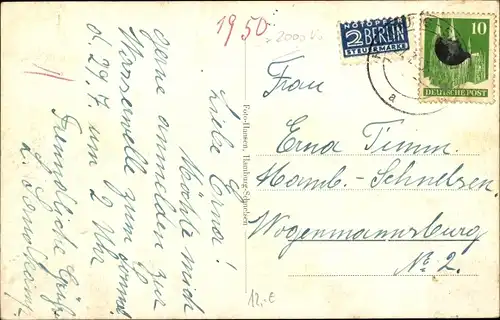 1950
2000
NOTOPFER
2 BERLIN
STEUERMARKE
10
DEUTSCHE POST
a
Liebe Erna!
Möchte mich
gerne anmelden zur
Wasserwelle zum Sonnab.
d. 29.7. um 2 Uhr
Freundliche Grüße
Foto-Hansen, Hamburg-Schnelsen
Frau
Erna Timm.
Hamb.-Schnelsen.
Wogenmannsburg
No 2.
12,-E